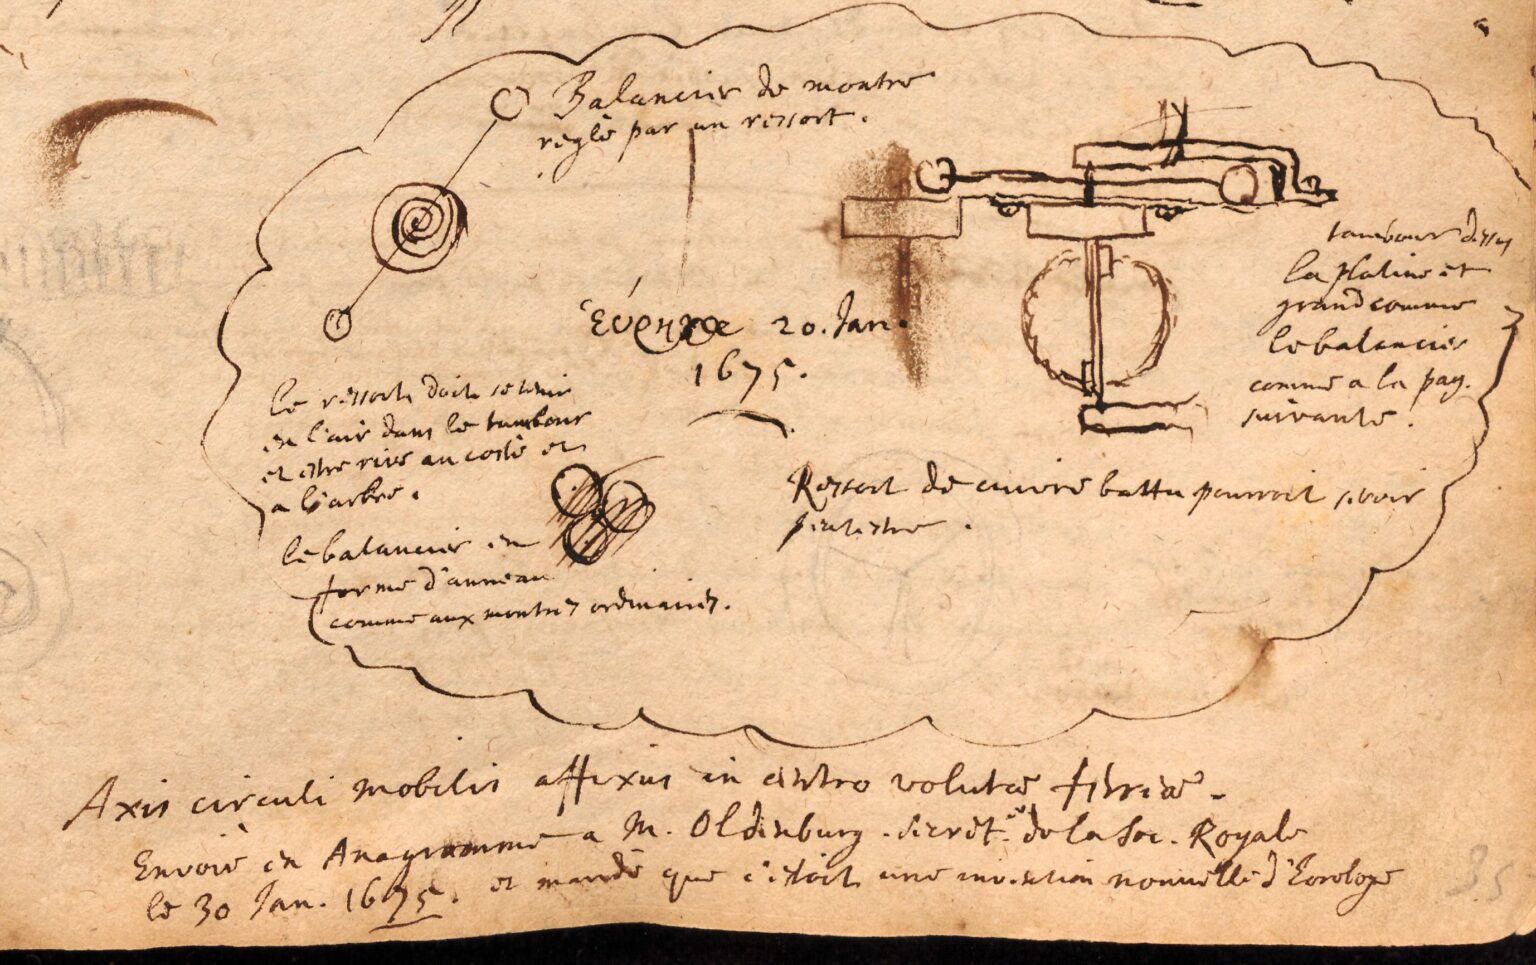 Balancier de montre
reglè par un ressort.
tambour dessus
la platine et
grand comme
le balancier
comme a la pag.
suivante.
εὕρηκα 20. Jan.
1675.
le ressort doit se tenir
en l'air dans le tambour
et estre rivè au costè et
a l'arbre.
le balancier en
forme d'anneau
comme aux montres ordinaires.
Ressort de cuivre battu pourroit servir
peutestre.
Axis circuli mobilis affixus in centro volutæ ferreæ.
Envoiè en Anagramme a M. Oldenburg. Secret.re de la Soc. Royale
le 30 Jan. 1675. et mandè que c'estoit une invention nouvelle d'horologe
35